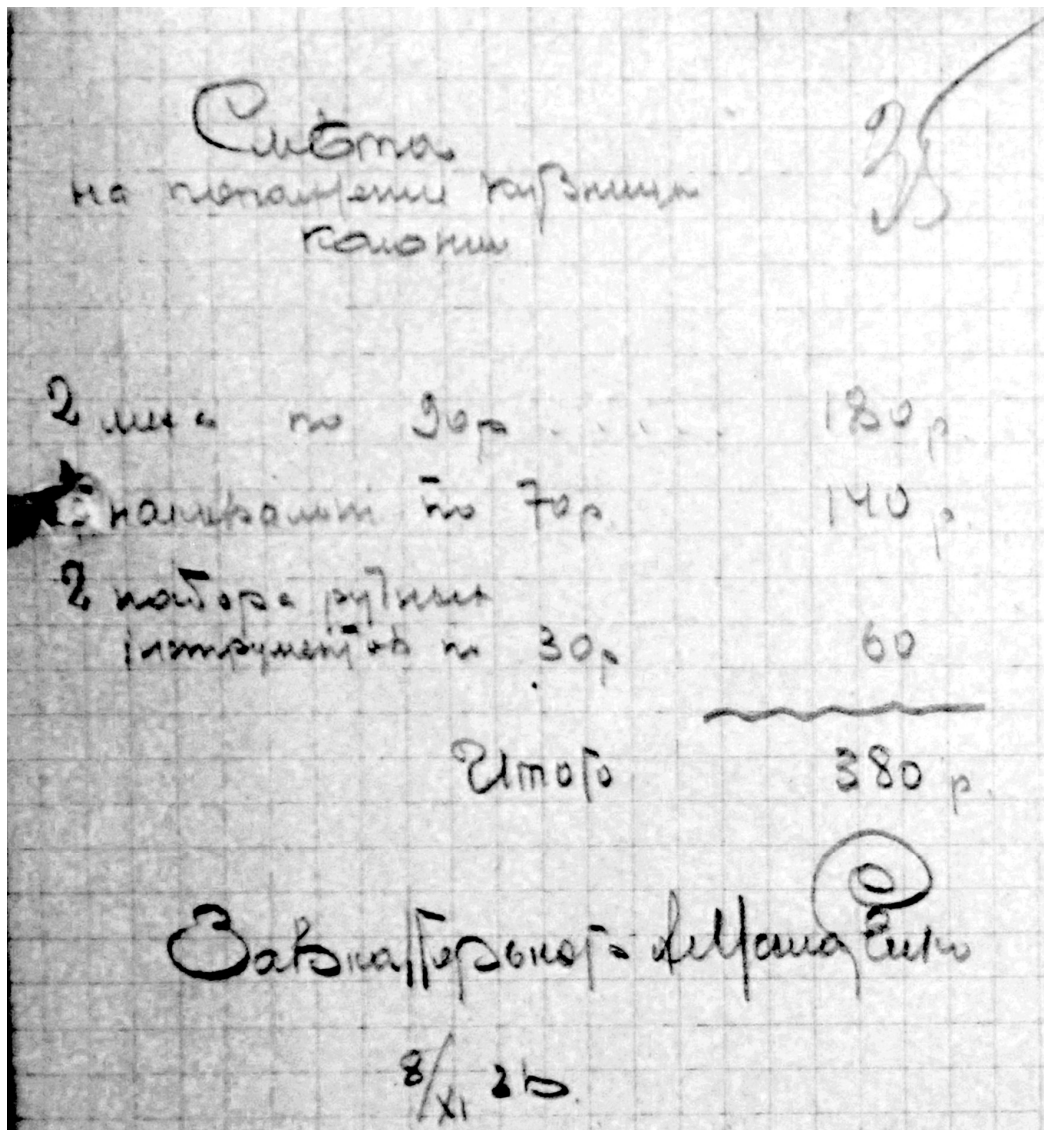 Смета
35
на попол­нение кузницы
колонии
2 меха по 90 р. . . . . . 180 р.
наковальни по 70 р. 140 р.
2 набора ручных
інструментов по 30 р. 60
Итого 380 р.
Завкол Горького А Макаренко
8/XI 26.